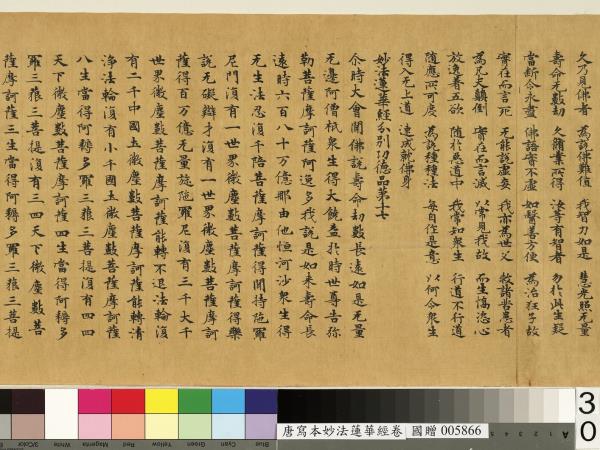 久乃見佛者 為說佛難值 我智力如是 慧光照无量
壽命无數劫 久修業所得 汝等有智者 勿於此生疑
當斷令永盡 佛語實不虛 如醫善方便 為治狂子故
實在而言死 无能說虛妄 我亦為世父 救諸苦患者
為凡夫顛倒 實在而言滅 以常見我故 而生憍恣心
放逸著五欲 墮於惡道中 我常知眾生 行道不行道
隨應所可度 為說種種法 每自作是意 以何令眾生
得入无上道 速成就佛身
妙法蓮華經分別功德品第十七
尒時大會聞佛說壽命劫數長遠如是无量
无邊阿僧祇眾生得大饒益於時世尊告弥
勒菩薩摩訶薩阿逸多我說是如来壽命長
遠時六百八十万億那由他恒河沙眾生得
无生法忍復千倍菩薩摩訶薩得聞持陁羅
尼門復有一世界微塵數菩薩摩訶薩得樂
說无礙辯才復有一世界微塵數菩薩摩訶
薩得百万億无量旋陁羅尼復有三千大千
世界微塵數菩薩摩訶薩能轉不退法輪復
有二千中國土微塵數菩薩摩訶薩能轉清
淨法輪復有小千國土微塵數菩薩摩訶薩
八生當得阿耨多羅三藐三菩提復有四四
天下微塵數菩薩摩訶薩四生當得阿耨多
羅三藐三菩提復有三四天下微塵數菩
薩摩訶薩三生當得阿耨多羅三藐三菩提
3/Color White Magenta Red Yellow Green Cyan Blue
唐寫本妙法蓮華經卷 國贈 005866
5 4 3 2 1 A
30